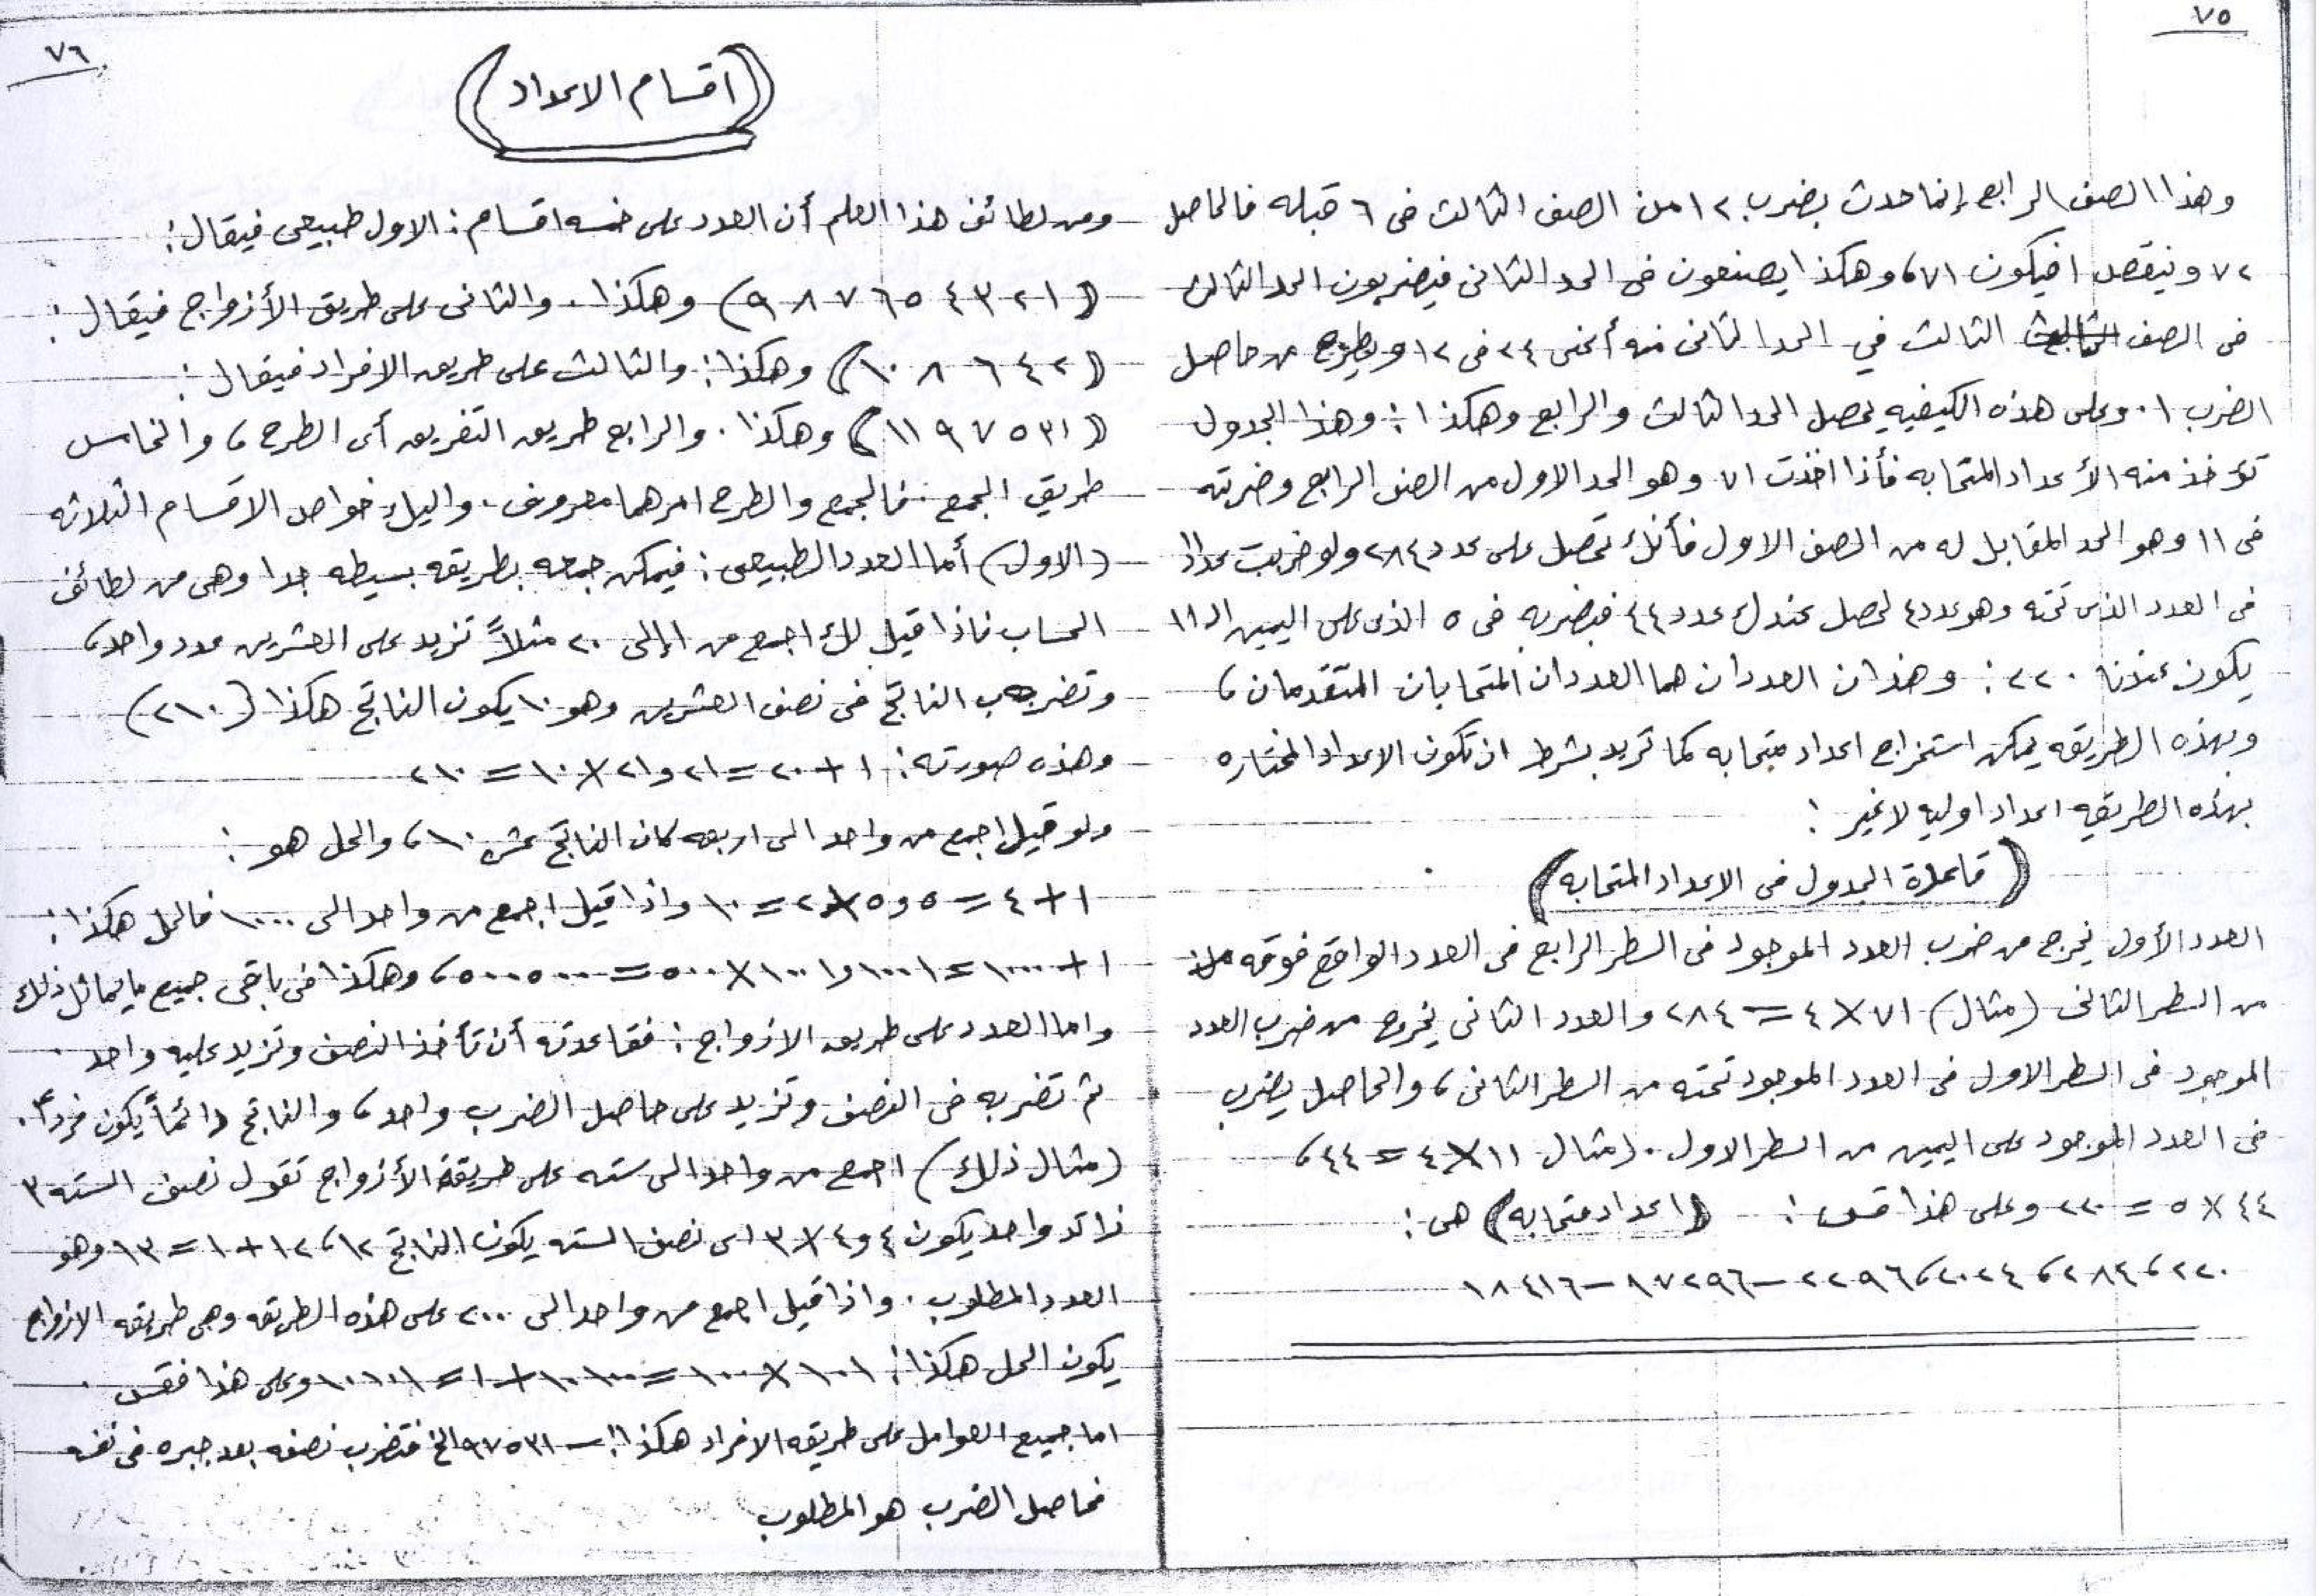 ٧٥
وهذا الصف الرابع إنما حدث بضرب ١٢ من الصف الثالث فى ٦ قبله فالحاصل
٧٢ وينقص ١ فيكون ٧١، وهكذا يصنعون فى الحد الثانى فيضربون الحد الثالث
فى الصف الثالث في الحد الثانى منه أعنى ٢٤ فى ١٢ ويطرح من حاصل
الضرب ١. وعلى هذه الكيفيه يحصل الحد الثالث والرابع وهكذا: وهذا الجدول
تؤخذ منه الأعداد المتحابه فأذا اخذت ٧١ وهو الحد الاول من الصف الرابع وضربته
فى ١١ وهو الحد المقابل له من الصف الاول فأنك تحصل على عدد ٢٨٤ ولو ضربت عدد ١١
فى العدد الذى تحته وهو عدد ٤ لحصل عندك عدد ٤٤ فبضربه فى ٥ الذى على اليمين الـ ١١
يكون عندنا ٢٢٠: وهذان العددان هما العددان المتحابان المتقدمان،
وبهذه الطريقه يمكن استخراج اعداد متحابه كما تريد بشرط ان تكون الاعداد المختاره
بهذه الطريقه اعداد اوليه لاغير:
(قاعدة الجدول فى الاعداد المتحابه)
العدد الأول يخرج من ضرب العدد الموجود فى السطر الرابع فى العدد الواقع فوقه
من السطر الثانى (مثال) ٧١ × ٤ = ٢٨٤ والعدد الثانى يخرج من ضرب العدد
الموجود فى السطر الاول فى العدد الموجود تحته من السطر الثانى، والحاصل يضرب
فى العدد الموجود على اليمين من السطر الاول. (مثال ١١ × ٤ = ٤٤،
٤٤ × ٥ = ٢٢٠ وعلى هذا قس: (اعداد متحابه) هى:
٢٢٠، ٢٨٤، ٢٠٢٤، ٢٢٩٦ – ١٧٢٩٦ – ١٨٤١٦
٧٦
(اقسام الاعداد)
ومن لطائف هذا العلم أن العدد على خمسه اقسام: الاول طبيعى فيقال:
(١ ٢ ٣ ٤ ٥ ٦ ٧ ٨ ٩) وهكذا. والثانى على طريق الأزواج فيقال:
(٢ ٤ ٦ ٨ ١٠) وهكذا: والثالث على طريق الافراد فيقال:
(١ ٣ ٥ ٧ ٩ ١١) وهكذا. والرابع طريق التفريق أى الطرح، والخامس
طريق الجمع. فالجمع والطرح امرهما معروف. واليك خواص الاقسام الثلاثه
(الاول) أما العدد الطبيعى: فيمكن جمعه بطريقه بسيطه جدا وهى من لطائف
الحساب فاذا قيل لك اجمع من ١ إلى ٢٠ مثلاً تزيد على العشرين عدد واحد،
وتضرب الناتج فى نصف العشرين وهو ١٠ يكون الناتج هكذا (٢١٠)
وهذه صورته: ١ + ٢٠ = ٢١ و ٢١ × ١٠ = ٢١٠
ولو قيل اجمع من واحد الى اربعه كان الناتج عشره ١٠، والحل هو:
١ + ٤ = ٥ و ٥ × ٢ = ١٠ واذا قيل اجمع من واحد الى ١٠٠٠ فالحل هكذا:
١ + ١٠٠٠ = ١٠٠١ و ١٠٠١ × ٥٠٠ = ٥٠٠٥٠٠، وهكذا فى باقى جميع ما يماثل ذلك
واما العدد على طريق الازواج: فقاعدته أن تأخذ النصف وتزيد عليه واحد.
ثم تضربه فى النصف وتزيد على حاصل الضرب واحد، والناتج دائماً يكون فرداً.
(مثال ذلك) اجمع من واحد الى سته على طريقة الأزواج تقول نصف السته ٣
زائد واحد يكون ٤ و ٤ × ٣ اى نصف السته يكون الناتج ١٢، ١٢ + ١ = ١٣ وهو
العدد المطلوب. واذا قيل اجمع من واحد الى ٢٠٠ على هذه الطريقه وهى طريقه الازواج
يكون الحل هكذا: ١٠١ × ١٠٠ = ١٠١٠٠ + ١ = ١٠١٠١ وعلى هذا فقس.
اما جميع العوامل على طريقه الافراد هكذا: – ١ ٣ ٥ ٧ ٩ الخ فتضرب نصفه بعد جبره فى نفسه
فحاصل الضرب هو المطلوب